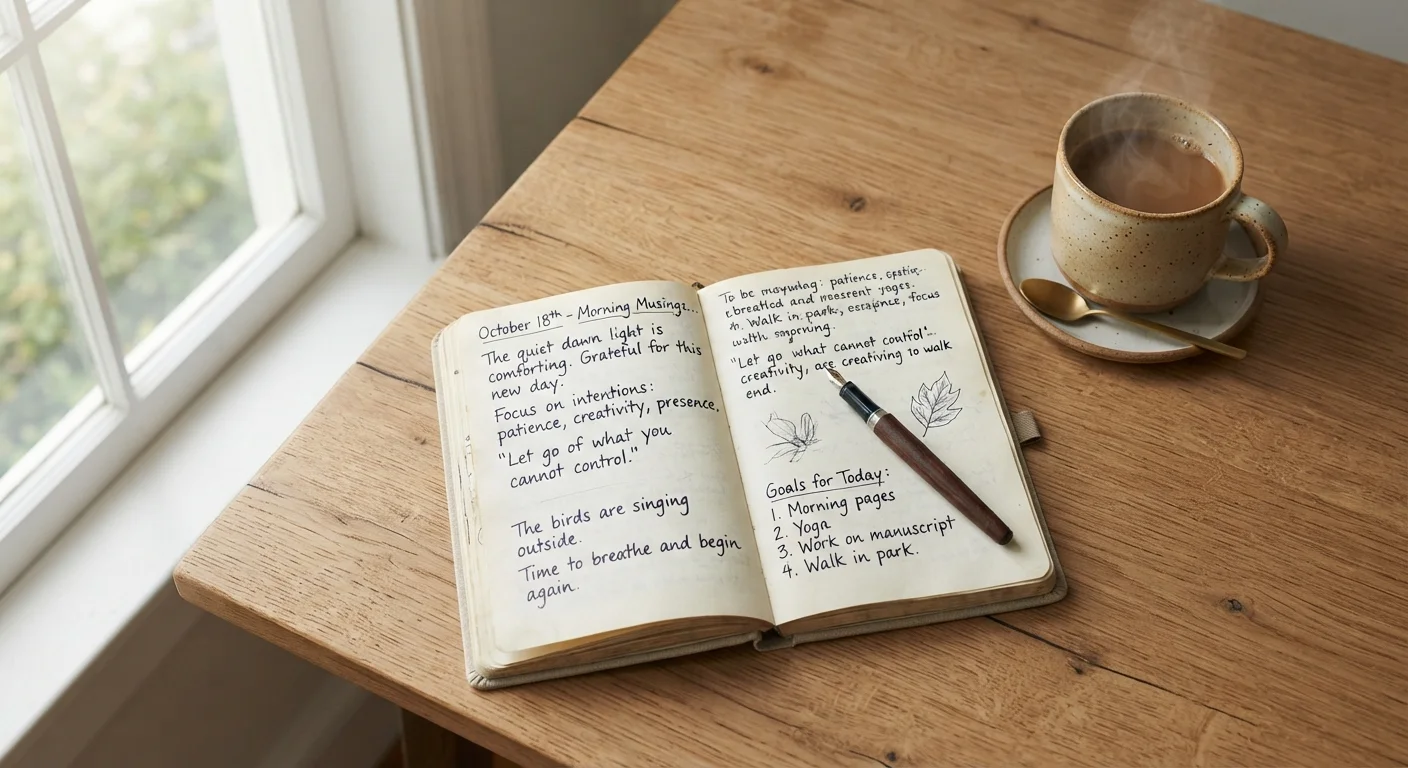 October 18th - Morning Musings...
The quiet dawn light is
comforting. Grateful for this
new day.
Focus on intentions:
patience, creativity, presence.
"Let go of what you
cannot control."
The birds are singing
outside.
Time to breathe and begin
again.
To be : patience,
and pages.
Walk in park, focus
"Let go what cannot control"...
creativity, are creativing to walk
end.
Goals for Today:
1. Morning pages
2. Yoga
3. Work on manuscript
4. Walk in park.